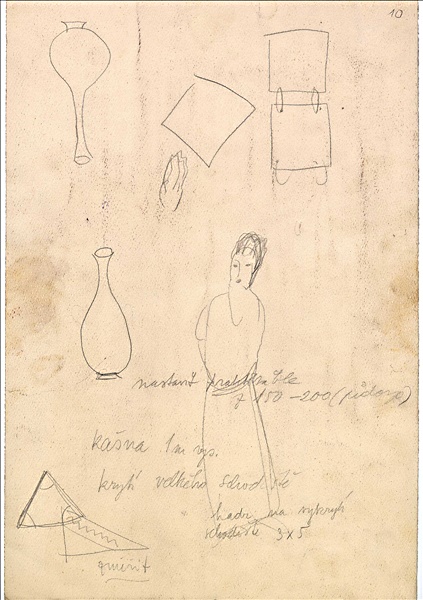 10
nastavit praktikable
z 150 - 200 (půdorys)
kašna 1m vys.
krytí velkého schodiště
hadr na vykrytí
schodiště 3x5
změřit